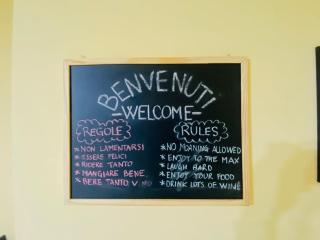 BENVENUTI
-WELCOME-
REGOLE
* NON LAMENTARSI
* ESSERE FELICI
* RIDERE TANTO
* MANGIARE BENE
* BERE TANTO VINO
RULES
* NO MOANING ALLOWED
* ENJOY TO THE MAX
* LAUGH HARD
* ENJOY YOUR FOOD
* DRINK LOTS OF WINE